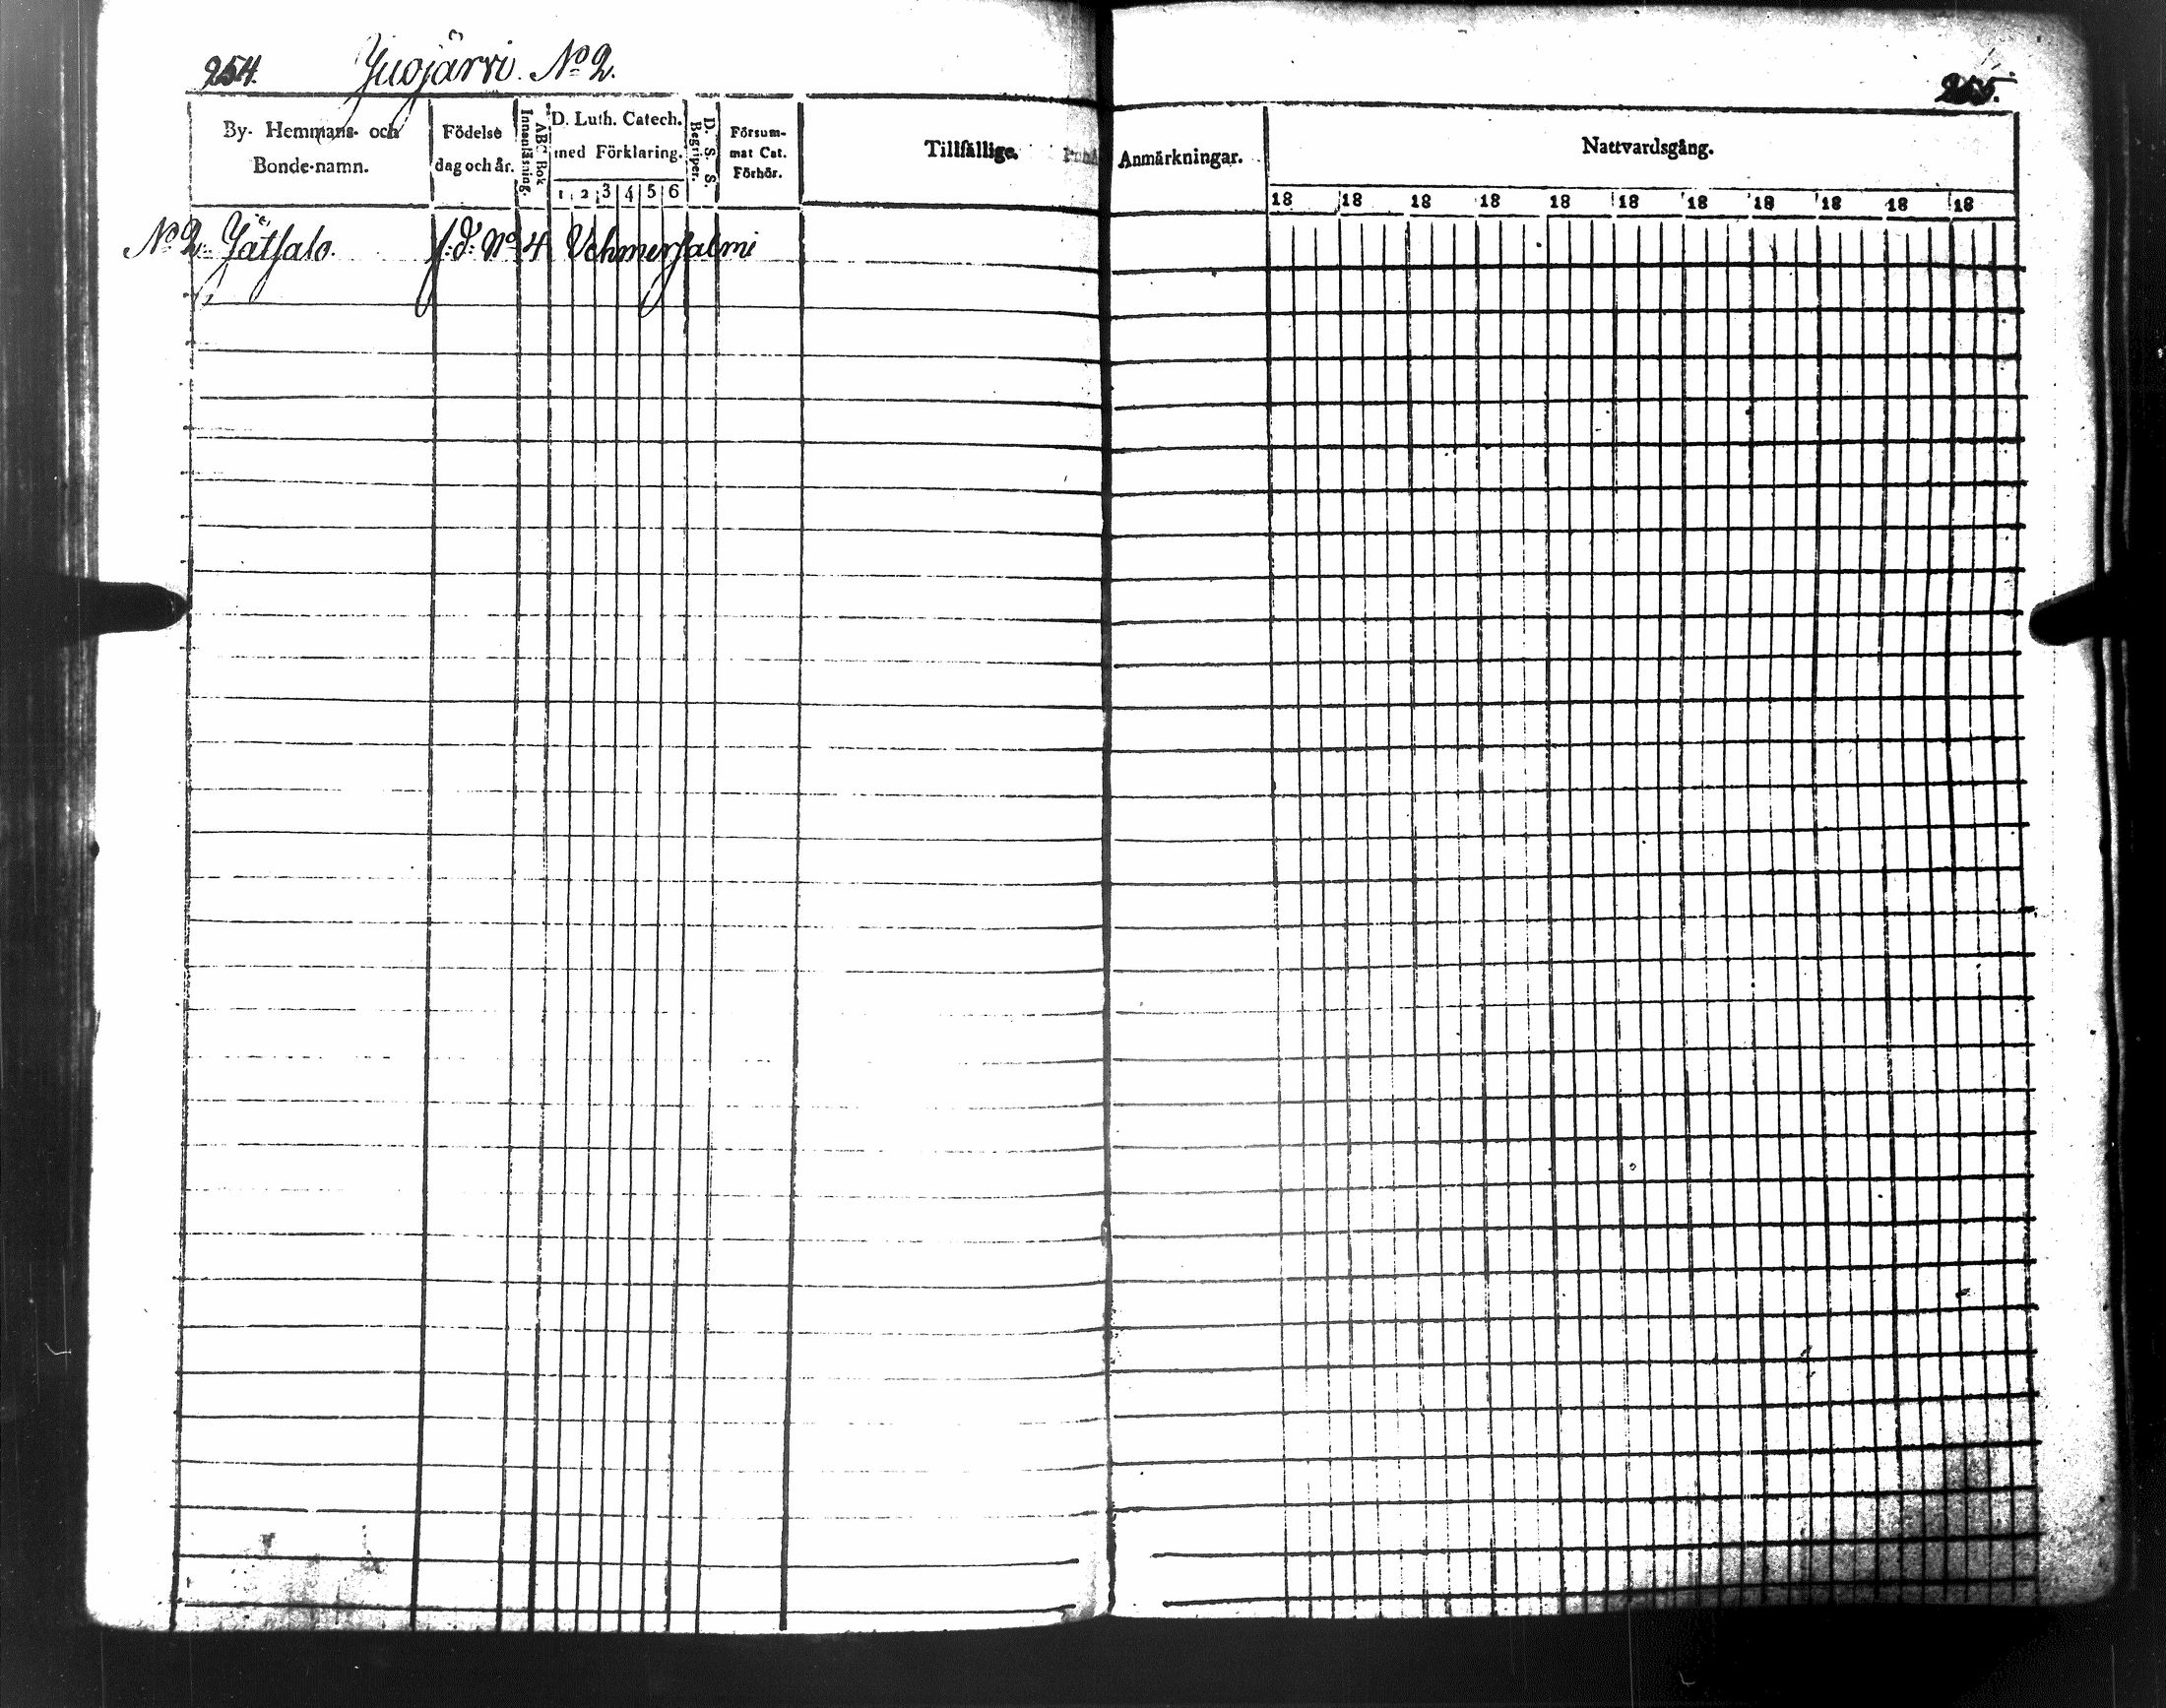 254. Juojärvi. No 2.
255.
By- Hemmans- och Bonde-namn.
Födelse dag och år.
Innanläsning.
ABC Bok
D. Luth. Catech. med Förklaring.
1 2 3 4 5 6
D. S. S. Begriper.
Försummat Cat. Förhör.
Tillfällige
Anmärkningar.
Nattvardsgång.
18 18 18 18 18 18 18 18 18 18 18
No 2. Jätsalo. f.d. No 4 Vehmersalmi